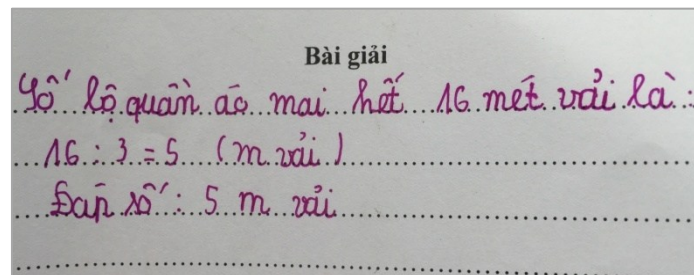 Bài giải
Số lộ quần áo mai hết 16 mét vải là :
16 : 3 = 5 (m vải)
Đap số : 5 m vải